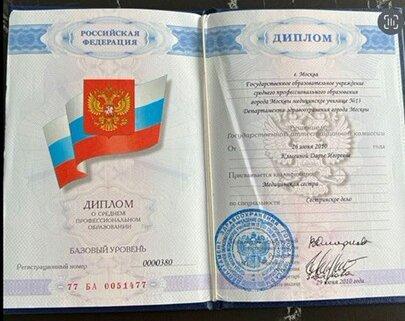 РОССИЙСКАЯ
ФЕДЕРАЦИЯ
ДИПЛОМ
О СРЕДНЕМ
ПРОФЕССИОНАЛЬНОМ
ОБРАЗОВАНИИ
БАЗОВЫЙ УРОВЕНЬ
Регистрационный номер 0000380
77 БА 0051477
ДИПЛОМ
г. Москва
Государственное образовательное учреждение
среднего профессионального образования
города Москвы медицинское училище №13
Департамента здравоохранения города Москвы
Решением
Государственной аттестационной комиссии
От 26 июня 2010 года
Дарье Игоревне
Присваивается квалификация
Медицинская сестра
по специальности
Сестринское дело
29 июня 2010